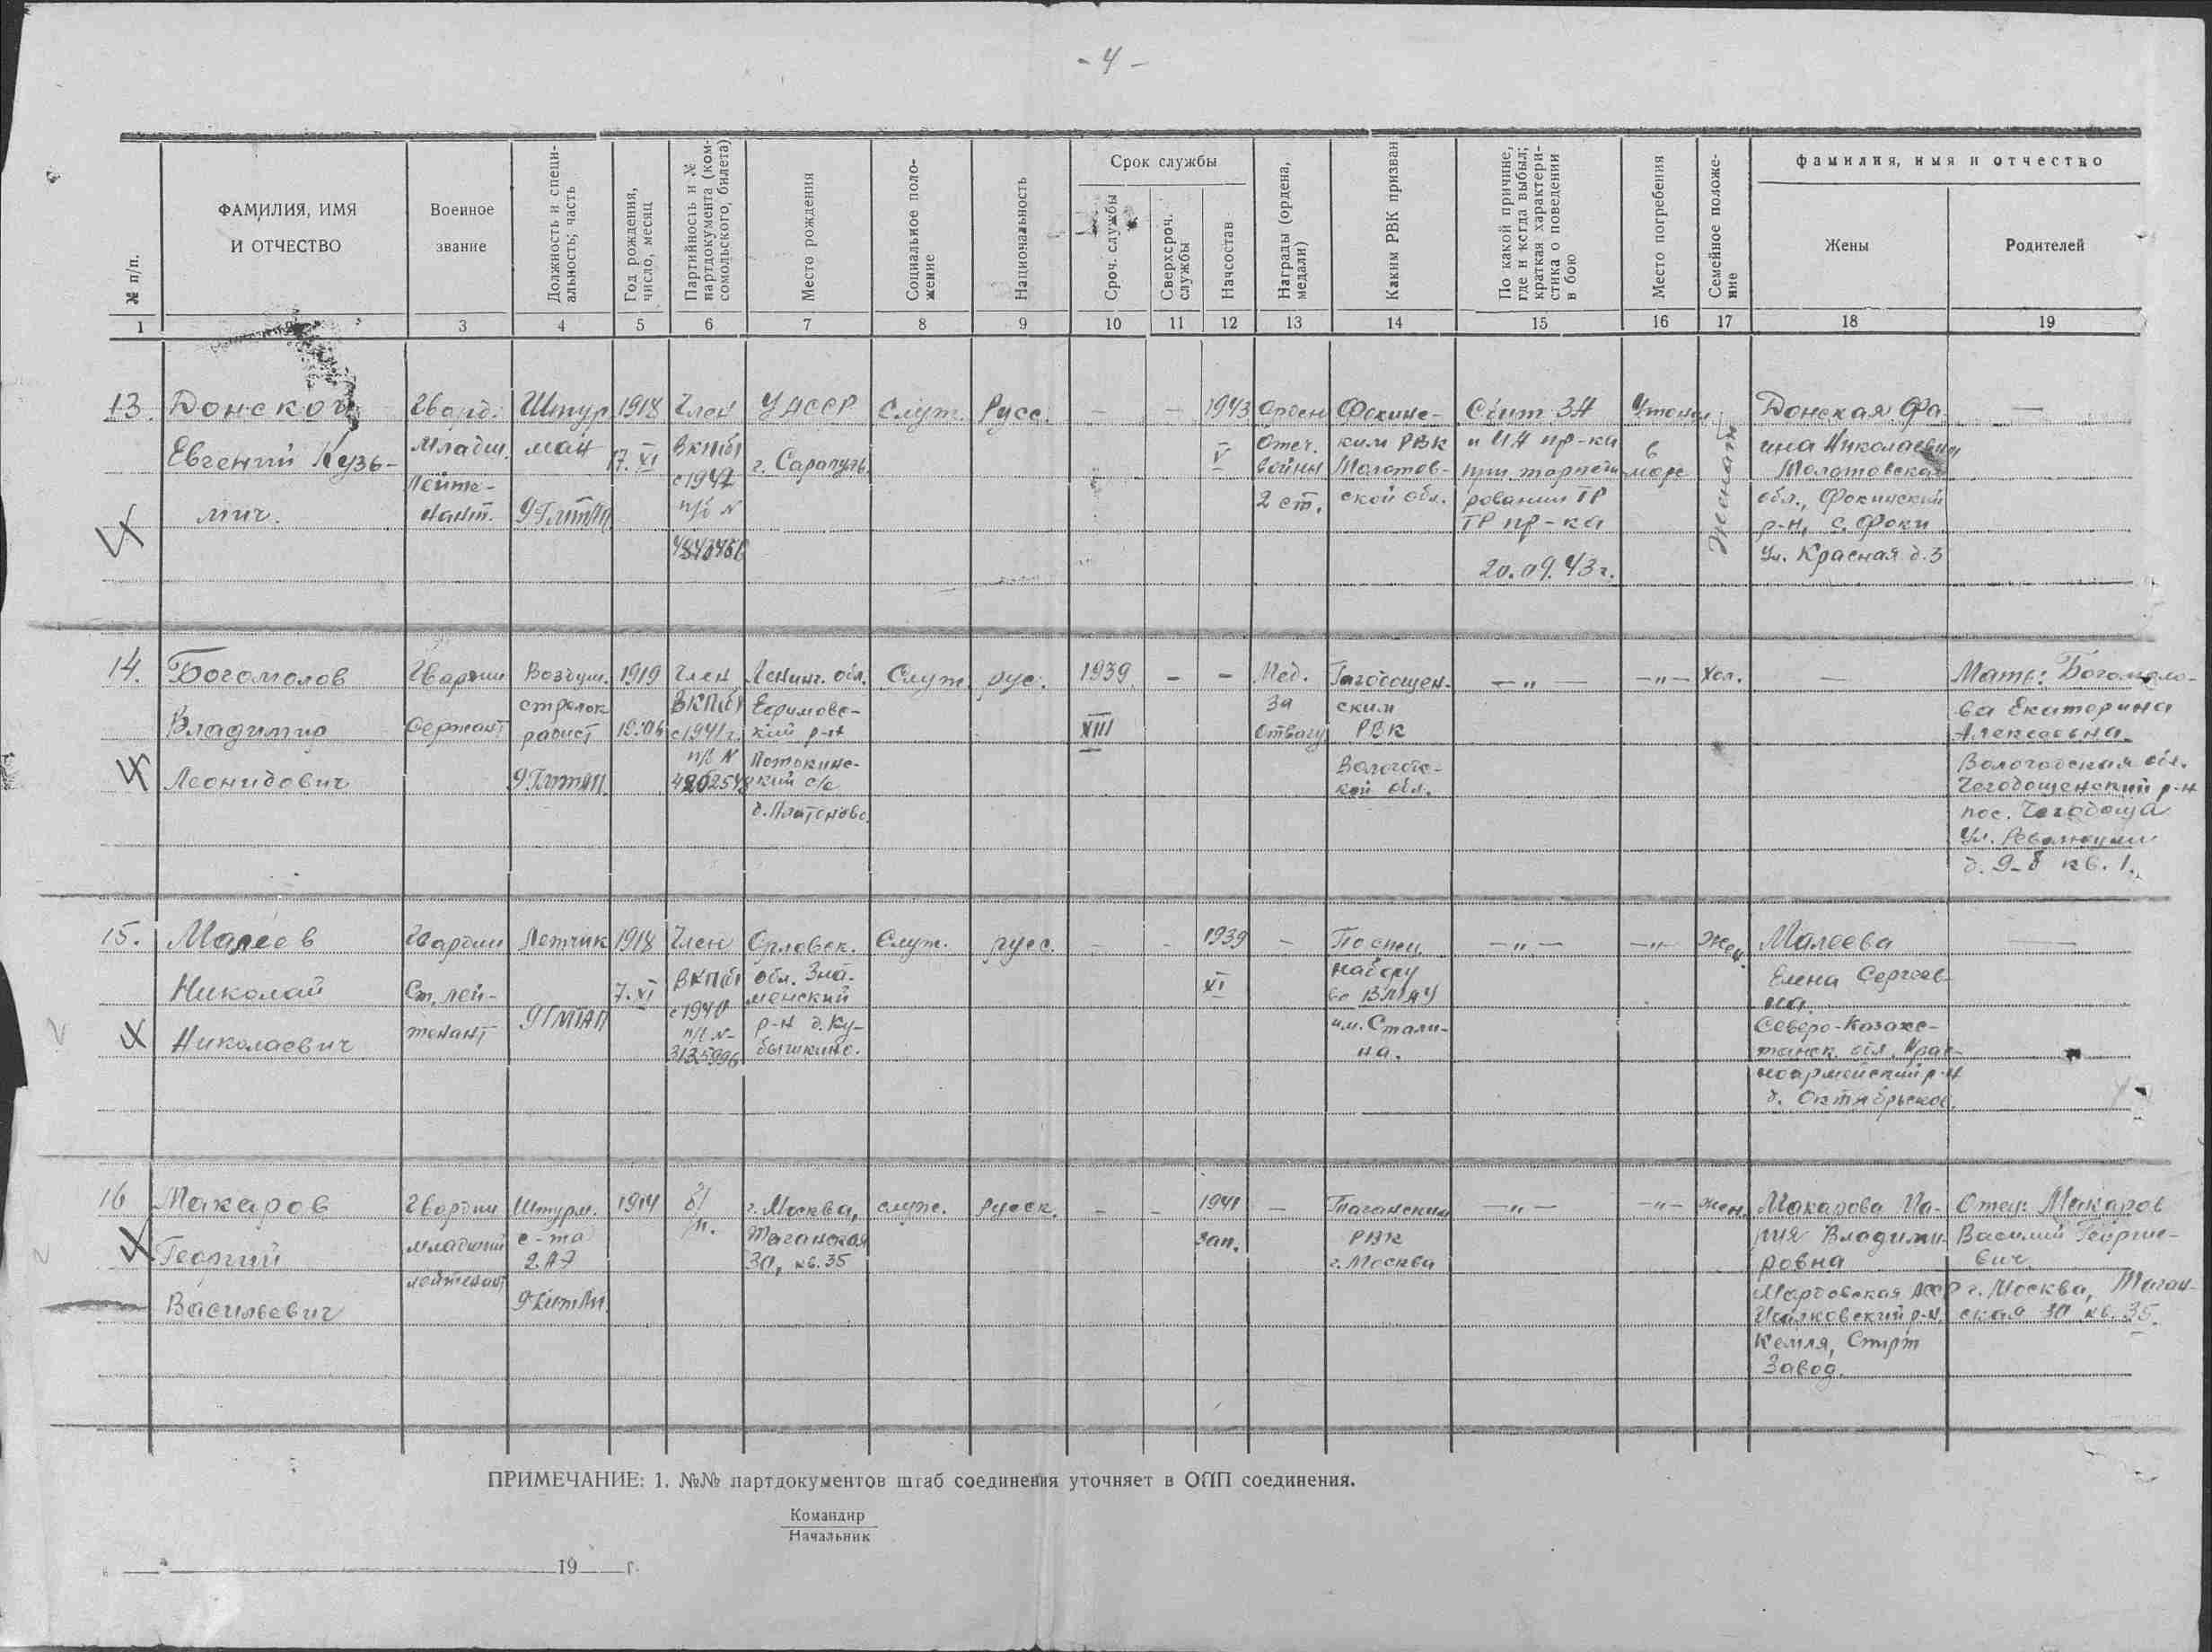 - 4 -
№ п/п.
ФАМИЛИЯ, ИМЯ
И ОТЧЕСТВО
Военное
звание
Должность и специ-
альность; часть
Год рождения,
число, месяц
Партийность и №
партдокумента (ком-
сомольского, билета)
Место рождения
Социальное поло-
жение
Национальность
Срок службы
Сроч. службы
Сверхсроч.
службы
Начсостав
Награды (ордена,
медали)
Каким РВК призван
По какой причине,
где и когда выбыл;
краткая характери-
стика о поведении
в бою
Место погребения
Семейное положе-
ние
фамилия, имя и отчество
Жены
Родителей
1 3 4 5 6 7 8 9 10 11 12 13 14 15 16 17 18 19
13.
Донской
Евгений Кузь-
мич.
Гвард.
младш.
лейте-
нант.
Штур
ман
9 ГмтАП
1918
17. XI
Член
ВКП(б)
с 1942
п/б N
УАССР
г. Сарапуль.
Служ.
Русс.
-
-
1943
V
Орден
Отеч.
войны
2 ст.
Фокинс-
ким РВК
Молотов-
ской обл.
Сбит ЗА
и ИА пр-ка
при торпеди
ровании ТР
ТР пр-ка
20.09.43 г.
Утонул
в
море
Женат
Донская Фа
ина Николаевна
Молотовская
обл., Фокинский
р-н, с. Фоки
Ул. Красная д. 3
—
14.
Богомолов
Владимир
Леонидович
Гвардии
Сержант
Воздуш.
стрелок
радист
9 ГмтАП.
1919
12.06
Член
ВКП(б)
с 1942 г.
п/б N
4802548
Ленинг. обл.
Ефимовс-
кий р-н
кий с/с
д. Платоново.
Служ
рус.
1939
XIII
-
-
Мед.
За
Отвагу
ским
РВК
Вологодс-
кой обл.
— „ —
— „ —
Хол.
—
Мать: Богомоло-
ва Екатерина
Алексеевна.
Вологодская обл.
Чегодощенский р-н
пос. Чегодоща
Ул. Революции
д. 9-8 кв. 1.
15.
Малеев
Николай
Николаевич
Гвардии
Ст. лей-
тенант
Летчик
9 ГМТАП
1918
7. XI
Член
ВКП(б)
с 1940
п/б N-
3135996
Орловск.
обл. Зна-
менский
р-н д. Ку-
бышкино.
Служ.
русс.
-
-
1939
XI
-
По спец.
набору
во ВМАУ
им. Стали-
на.
— „ —
— „ —
Жен.
Малеева
Елена Сергеев-
на.
Северо-Казахс-
танск. обл. Крас-
ноармейский р-н
д. Октябрьское.
—
16
Макаров
Георгий
Васильевич
Гвардии
младший
лейтенант
Штурм.
с-та
2 АЭ
9 ГмтАП.
1914
б/
/п.
г. Москва,
Таганская
30, кв. 35
служ.
Русск.
-
-
1941
зап.
-
Таганским
РВК
г. Москва
— „ —
— „ —
Жен.
Макарова Ма-
рия Владими
ровна
Мордовская АССР
Ичалковский р-н,
Кемля, Спирт
Завод.
Отец: Макаров
Василий Георгие-
вич
г. Москва, Таган-
ская 30 кв. 35.
ПРИМЕЧАНИЕ: 1. №№ партдокументов штаб соединения уточняет в ОПП соединения.
Командир
Начальник
19 г.